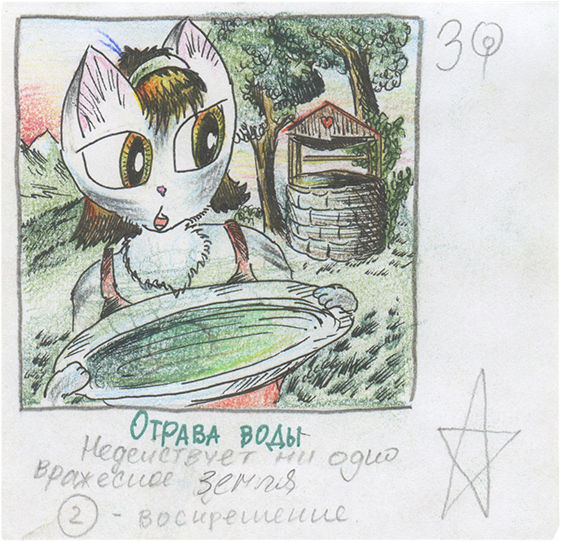 3
Отрава воды
Недействует ни одно
вражеское земля
2 - воскрешение.